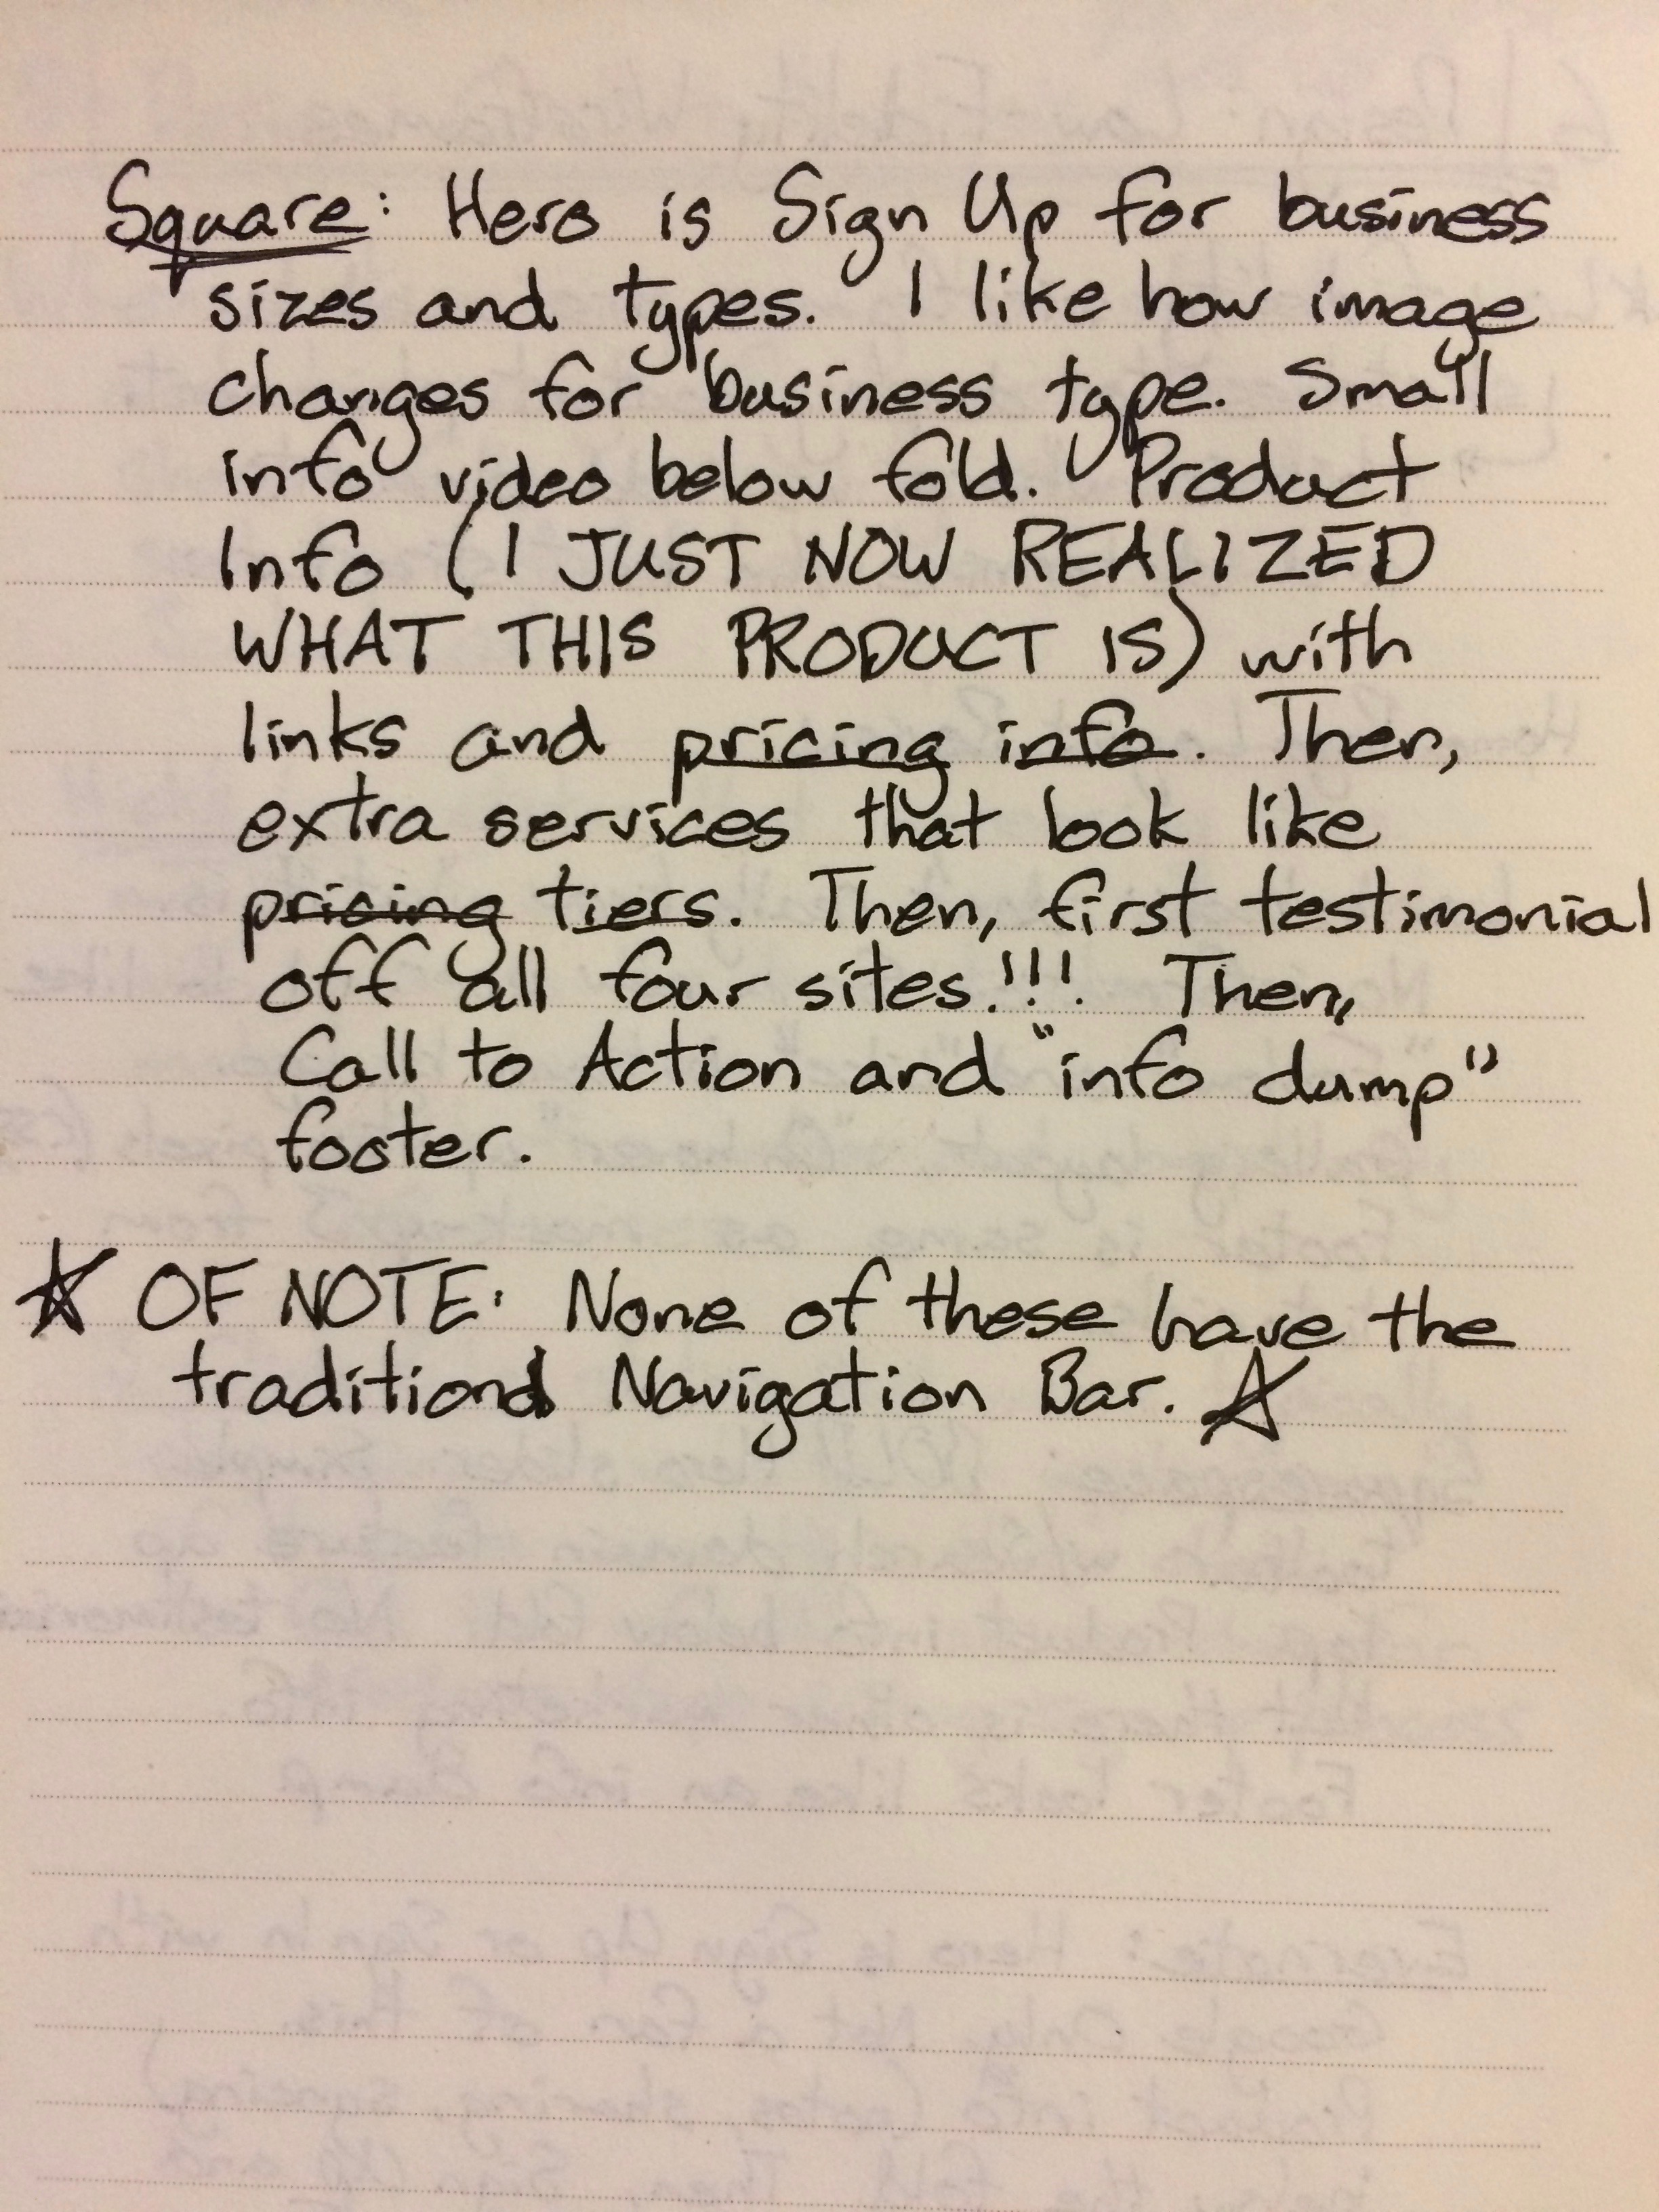 Square: Hero is Sign Up for business
sizes and types. I like how image
changes for business type. Small
info video below fold. Product
Info (I JUST NOW REALIZED
WHAT THIS PRODUCT IS) with
links and pricing info. Then,
extra services that look like
pricing tiers. Then, first testimonial
off all four sites!!! Then,
Call to Action and "info dump"
footer.
☆ OF NOTE: None of these have the
traditional Navigation Bar. ☆